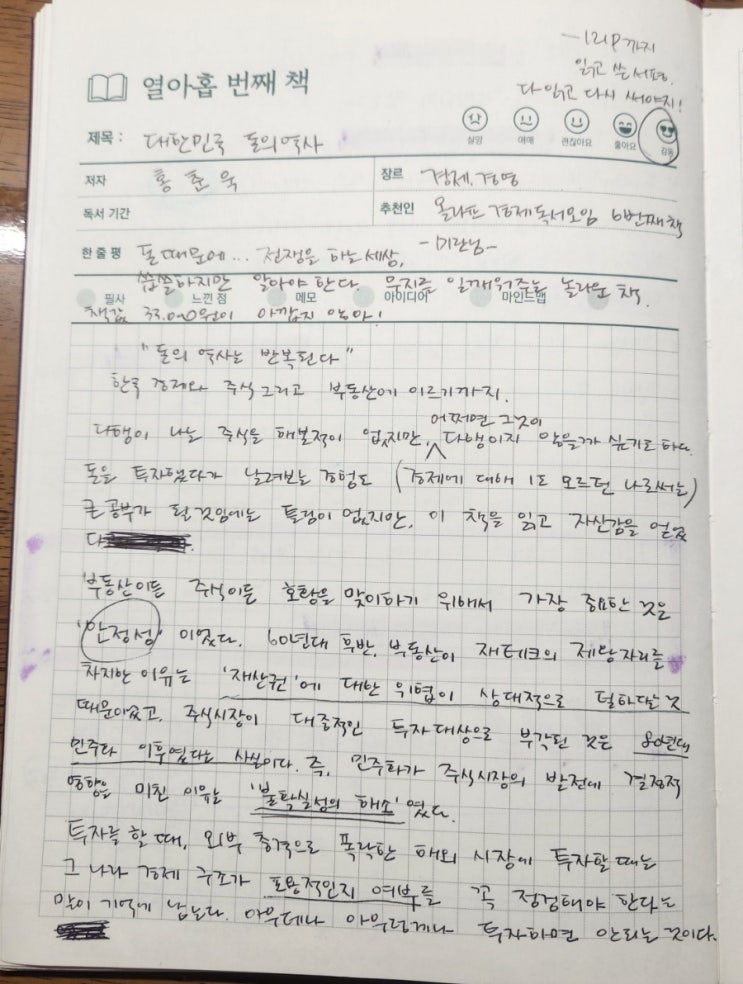 -121P까지
읽고 쓴 서평.
다 읽고 다시 써야지!
열아홉 번째 책
실망 애매 괜찮아요 좋아요 감동
제목: 대한민국 돈의 역사
저자 홍춘욱
장르 경제, 경영
독서 기간
추천인 올라프 경제독서모임 6번째 책
-미란님-
한 줄 평 돈 때문에... 전쟁을 하는 세상,
씁쓸하지만 알아야 한다. 무지를 일깨워주는 놀라운 책.
필사 느낀 점 메모 아이디어 마인드맵
책값 33,000원이 아깝지 않아!
"돈의 역사는 반복된다"
한국 경제와 주식 그리고 부동산에 이르기까지.
어쩌면 그것이
다행이 나는 주식을 해본적이 없지만, 다행이지 않을까 싶기도 하다.
돈을 투자했다가 날려보는 경험도 (경제에 대해 1도 모르던 나로써는)
큰 공부가 될 것임에는 틀림이 없지만, 이 책을 읽고 자신감을 얻었
다.
부동산이든 주식이든 호황을 맞이하기 위해서 가장 중요한 것은
'안정성' 이었다. 60년대 후반, 부동산이 재테크의 제왕자리를
차지한 이유는 '재산권'에 대한 위협이 상대적으로 덜하다는 것
때문이었고, 주식시장이 대중적인 투자대상으로 부각된 것은 80년대
민주화 이후였다는 사실이다. 즉, 민주화가 주식시장의 발전에 결정적
영향을 미친 이유는 '불확실성의 해소'였다.
투자를 할 때, 외부 충격으로 폭락한 해외 시장에 투자할 때는
그 나라 경제 구조가 포용적인지 여부를 꼭 점검해야 한다는
말이 기억에 남는다. 아무데나 아무렇게나 투자하면 안되는 것이다.